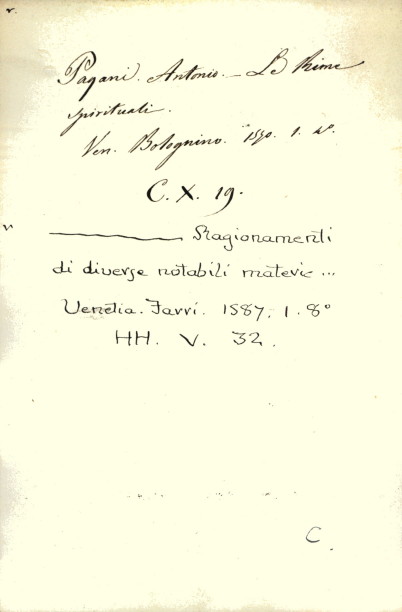 Pagani. Antonio. — Le Rime
spirituali.
Ven. Bolognino. 1590. 1. 4º.
C. X. 19.
———— Ragionamenti
di diverse notabili materie ...
Venetia. Farri. 1587. 1. 8º
HH. V. 32.
C.